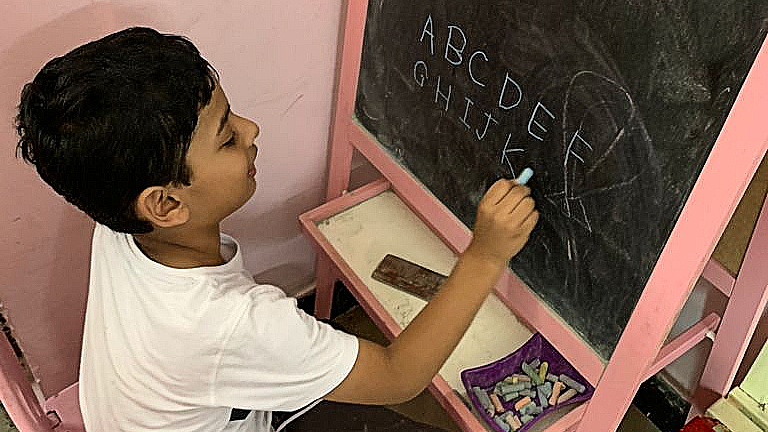 ABCDEF
GHIJK